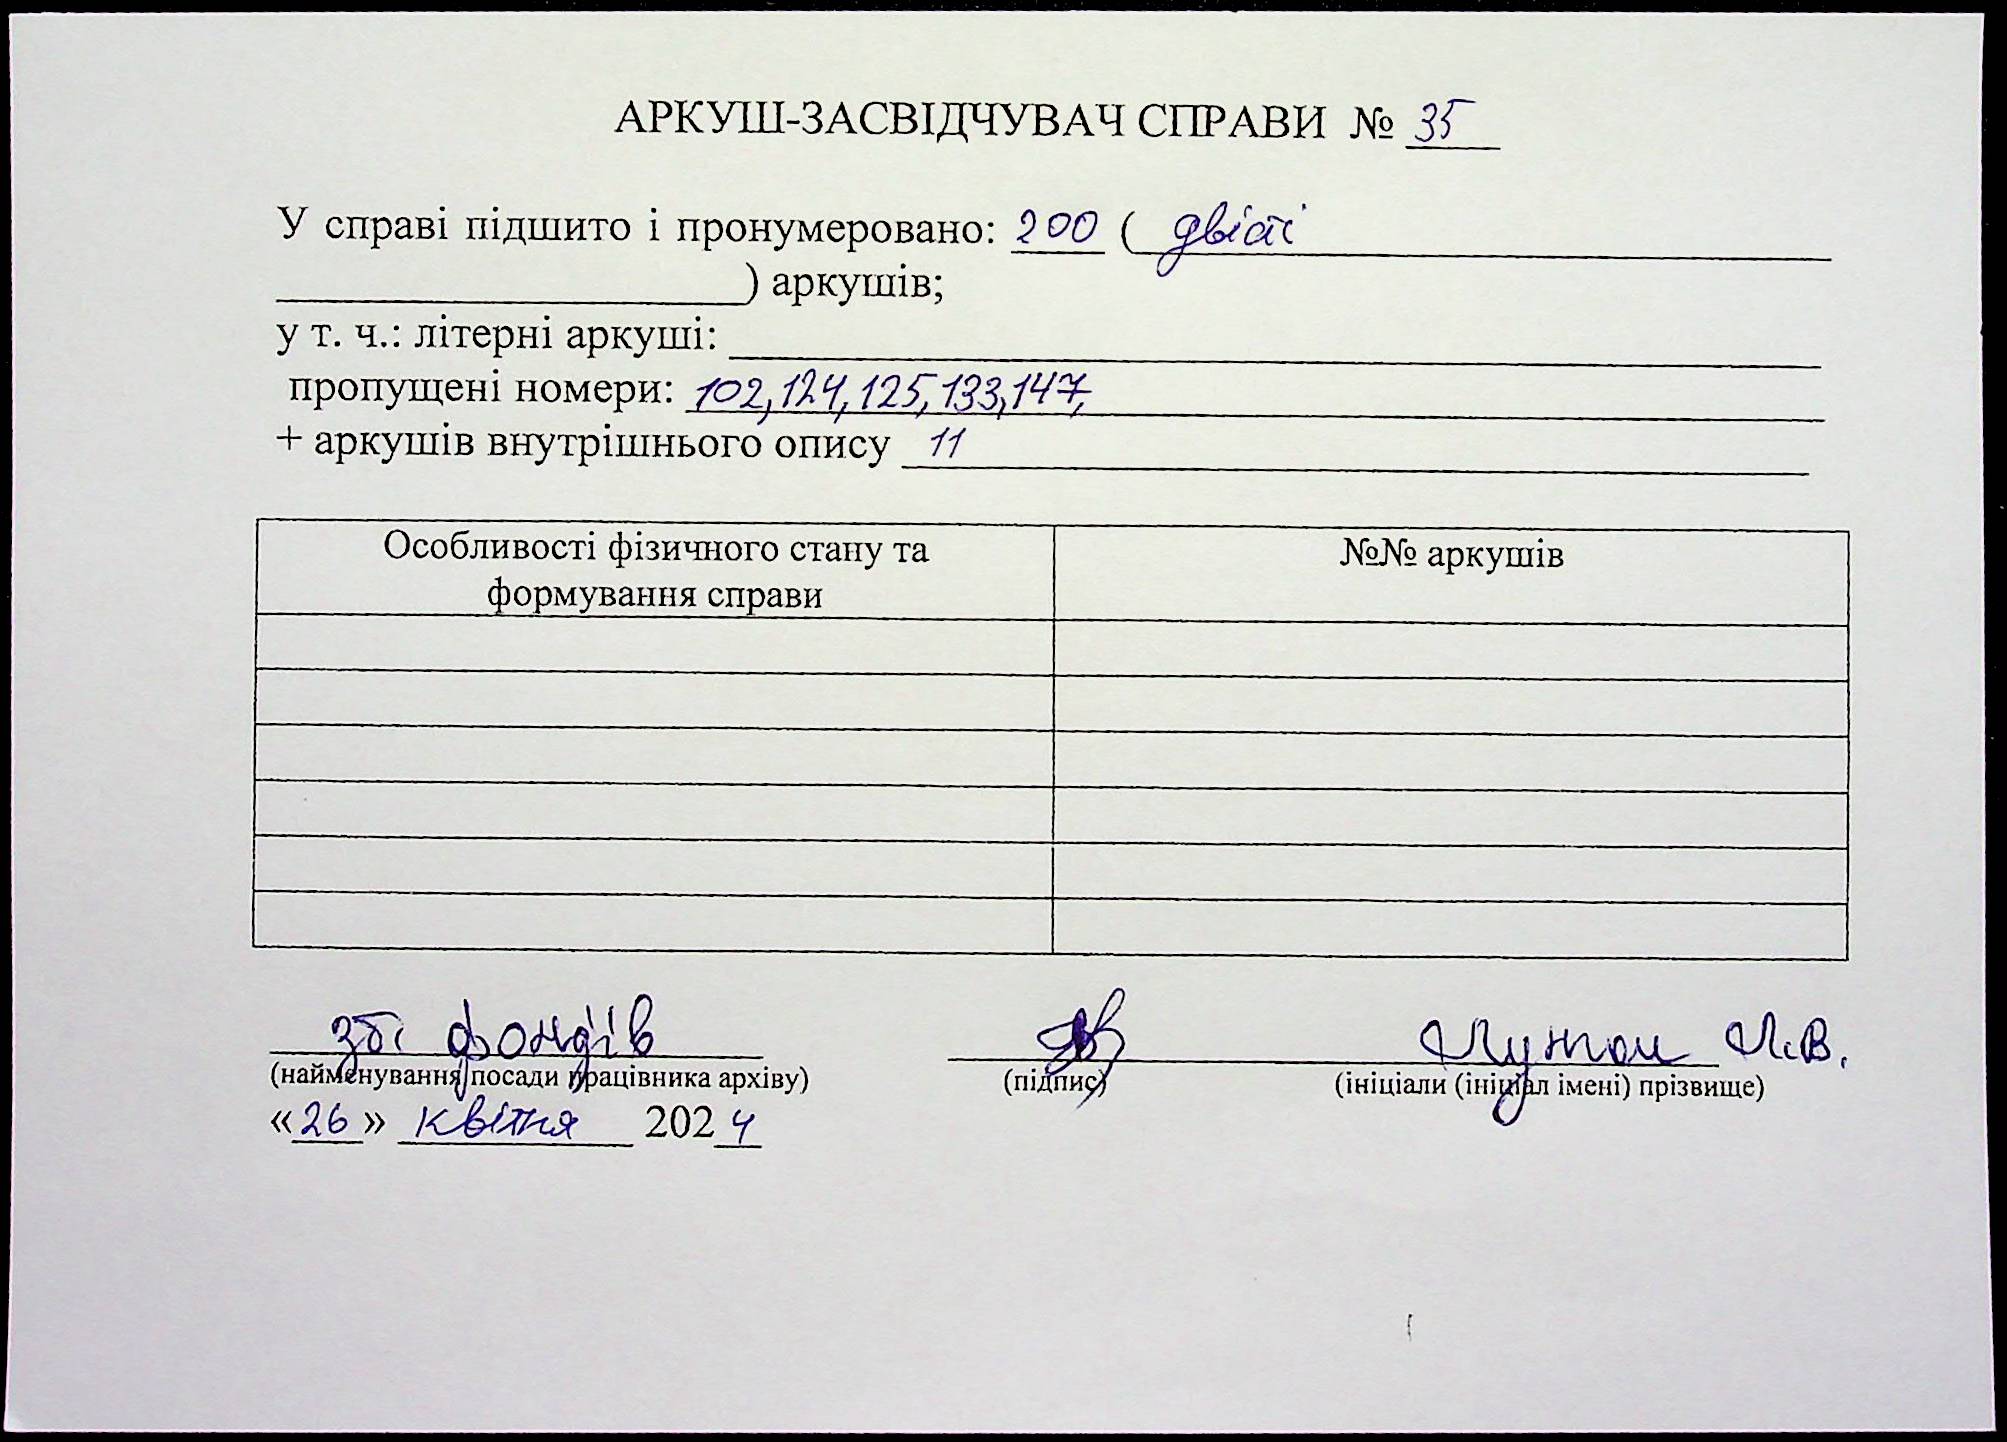 АРКУШ-ЗАСВІДЧУВАЧ СПРАВИ № 35
У справі підшито і пронумеровано: 200 ( двісті
) аркушів;
у т. ч.: літерні аркуші:
пропущені номери: 102, 124, 125, 133, 147,
+ аркушів внутрішнього опису 11
Особливості фізичного стану та
формування справи
№№ аркушів
зб. фондів
И.В.
(найменування посади працівника архіву) (підпис) (ініціали (ініціал імені) прізвище)
«26» квітня 2024